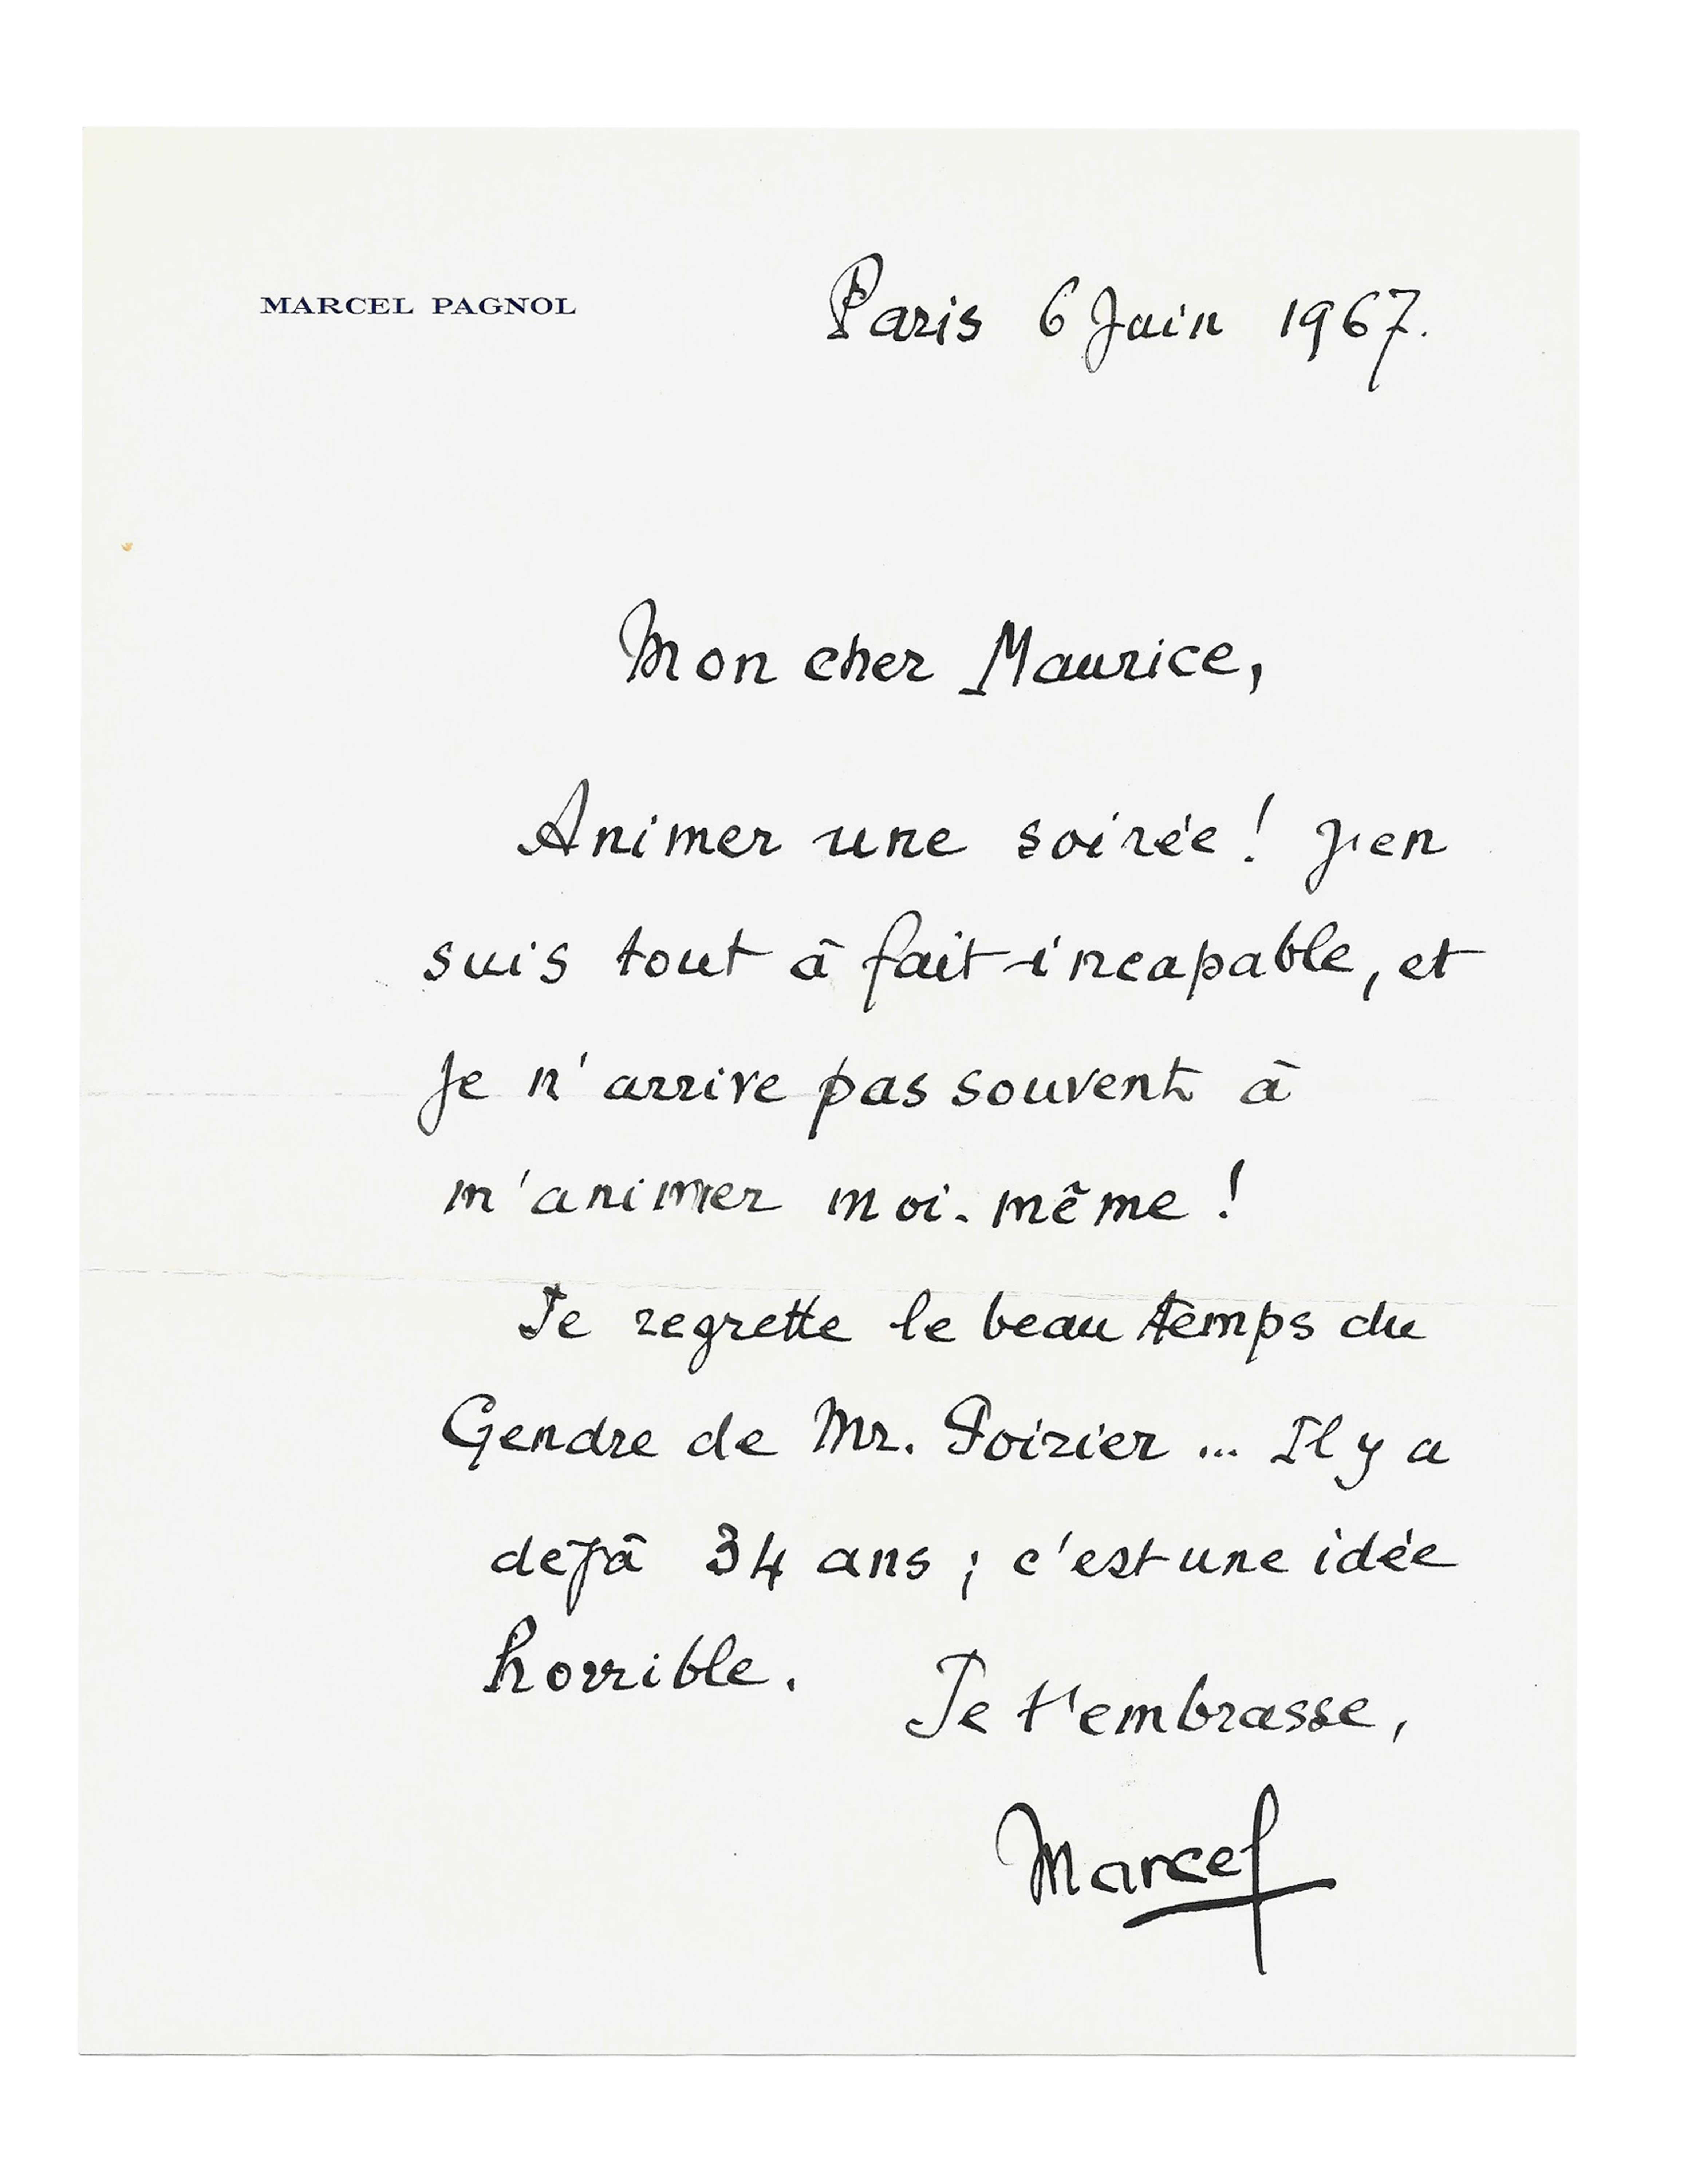 MARCEL PAGNOL
Paris 6 Juin 1967.
Mon cher Maurice,
Animer une soirée ! J'en
suis tout à fait incapable, et
je n'arrive pas souvent à
m'animer moi-même !
Je regrette le beau temps du
Gendre de Mr. Poirier ... Il y a
dejà 34 ans ; c'est une idée
horrible.
Je t'embrasse,
Marcel